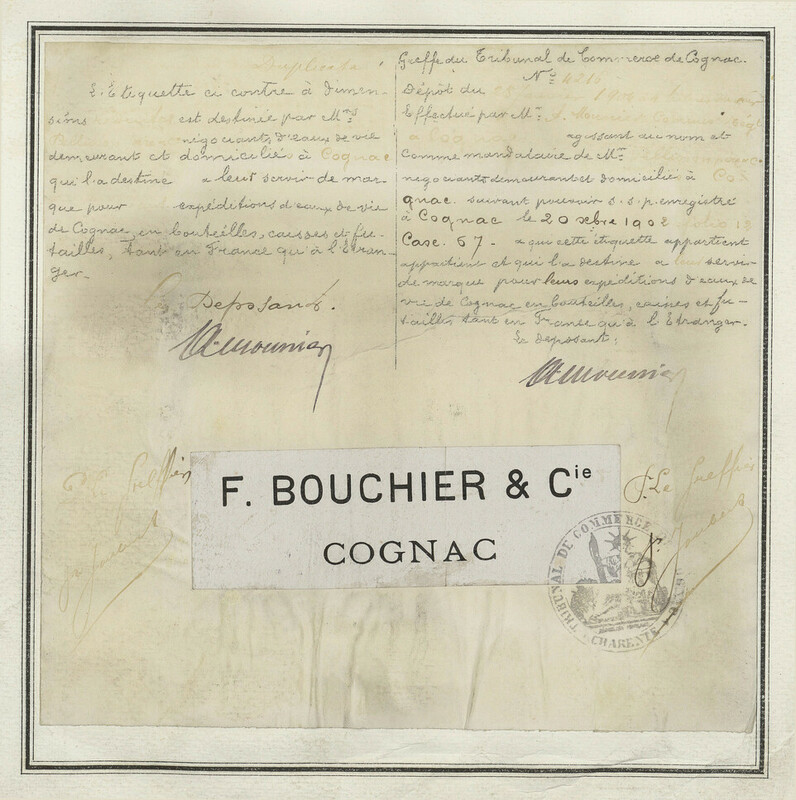 Duplicata
L'Etiquette ci contre à Dimen-
sions est destinée par Mrs
négociants d'eaux de vie
demeurant et domiciliés à Cognac
qui l'a destine a leur servir de mar-
que pour expéditions d'eaux de vie
de Cognac, en bouteilles, caisses et fu-
tailles, tant en France qu'à l'Etran-
ger.
Deposant.
Greffe du Tribunal de Commerce de Cognac.
No 4210
Dépôt du
Effectué par Mr.
agissant au nom et
comme mandataire de Mr.
négociants demeurant et domicilié à Co
gnac. suivant pouvoir s.s.p. enregistré
à Cognac le 20 Xbre 1902 Folio 12
Case. 67. a que cette étiquette appartient
appartient et qui l'a destine a leur servir
de marque pour leurs expéditions d'eaux de
vie de Cognac en bouteilles, caisses et fu-
tailles tant en France qu'à l'Etranger.
Le Deposant:
Le Greffier
F. BOUCHIER & Cie
COGNAC
Le Greffier
TRIBUNAL DE COMMERCE
CHARENTE